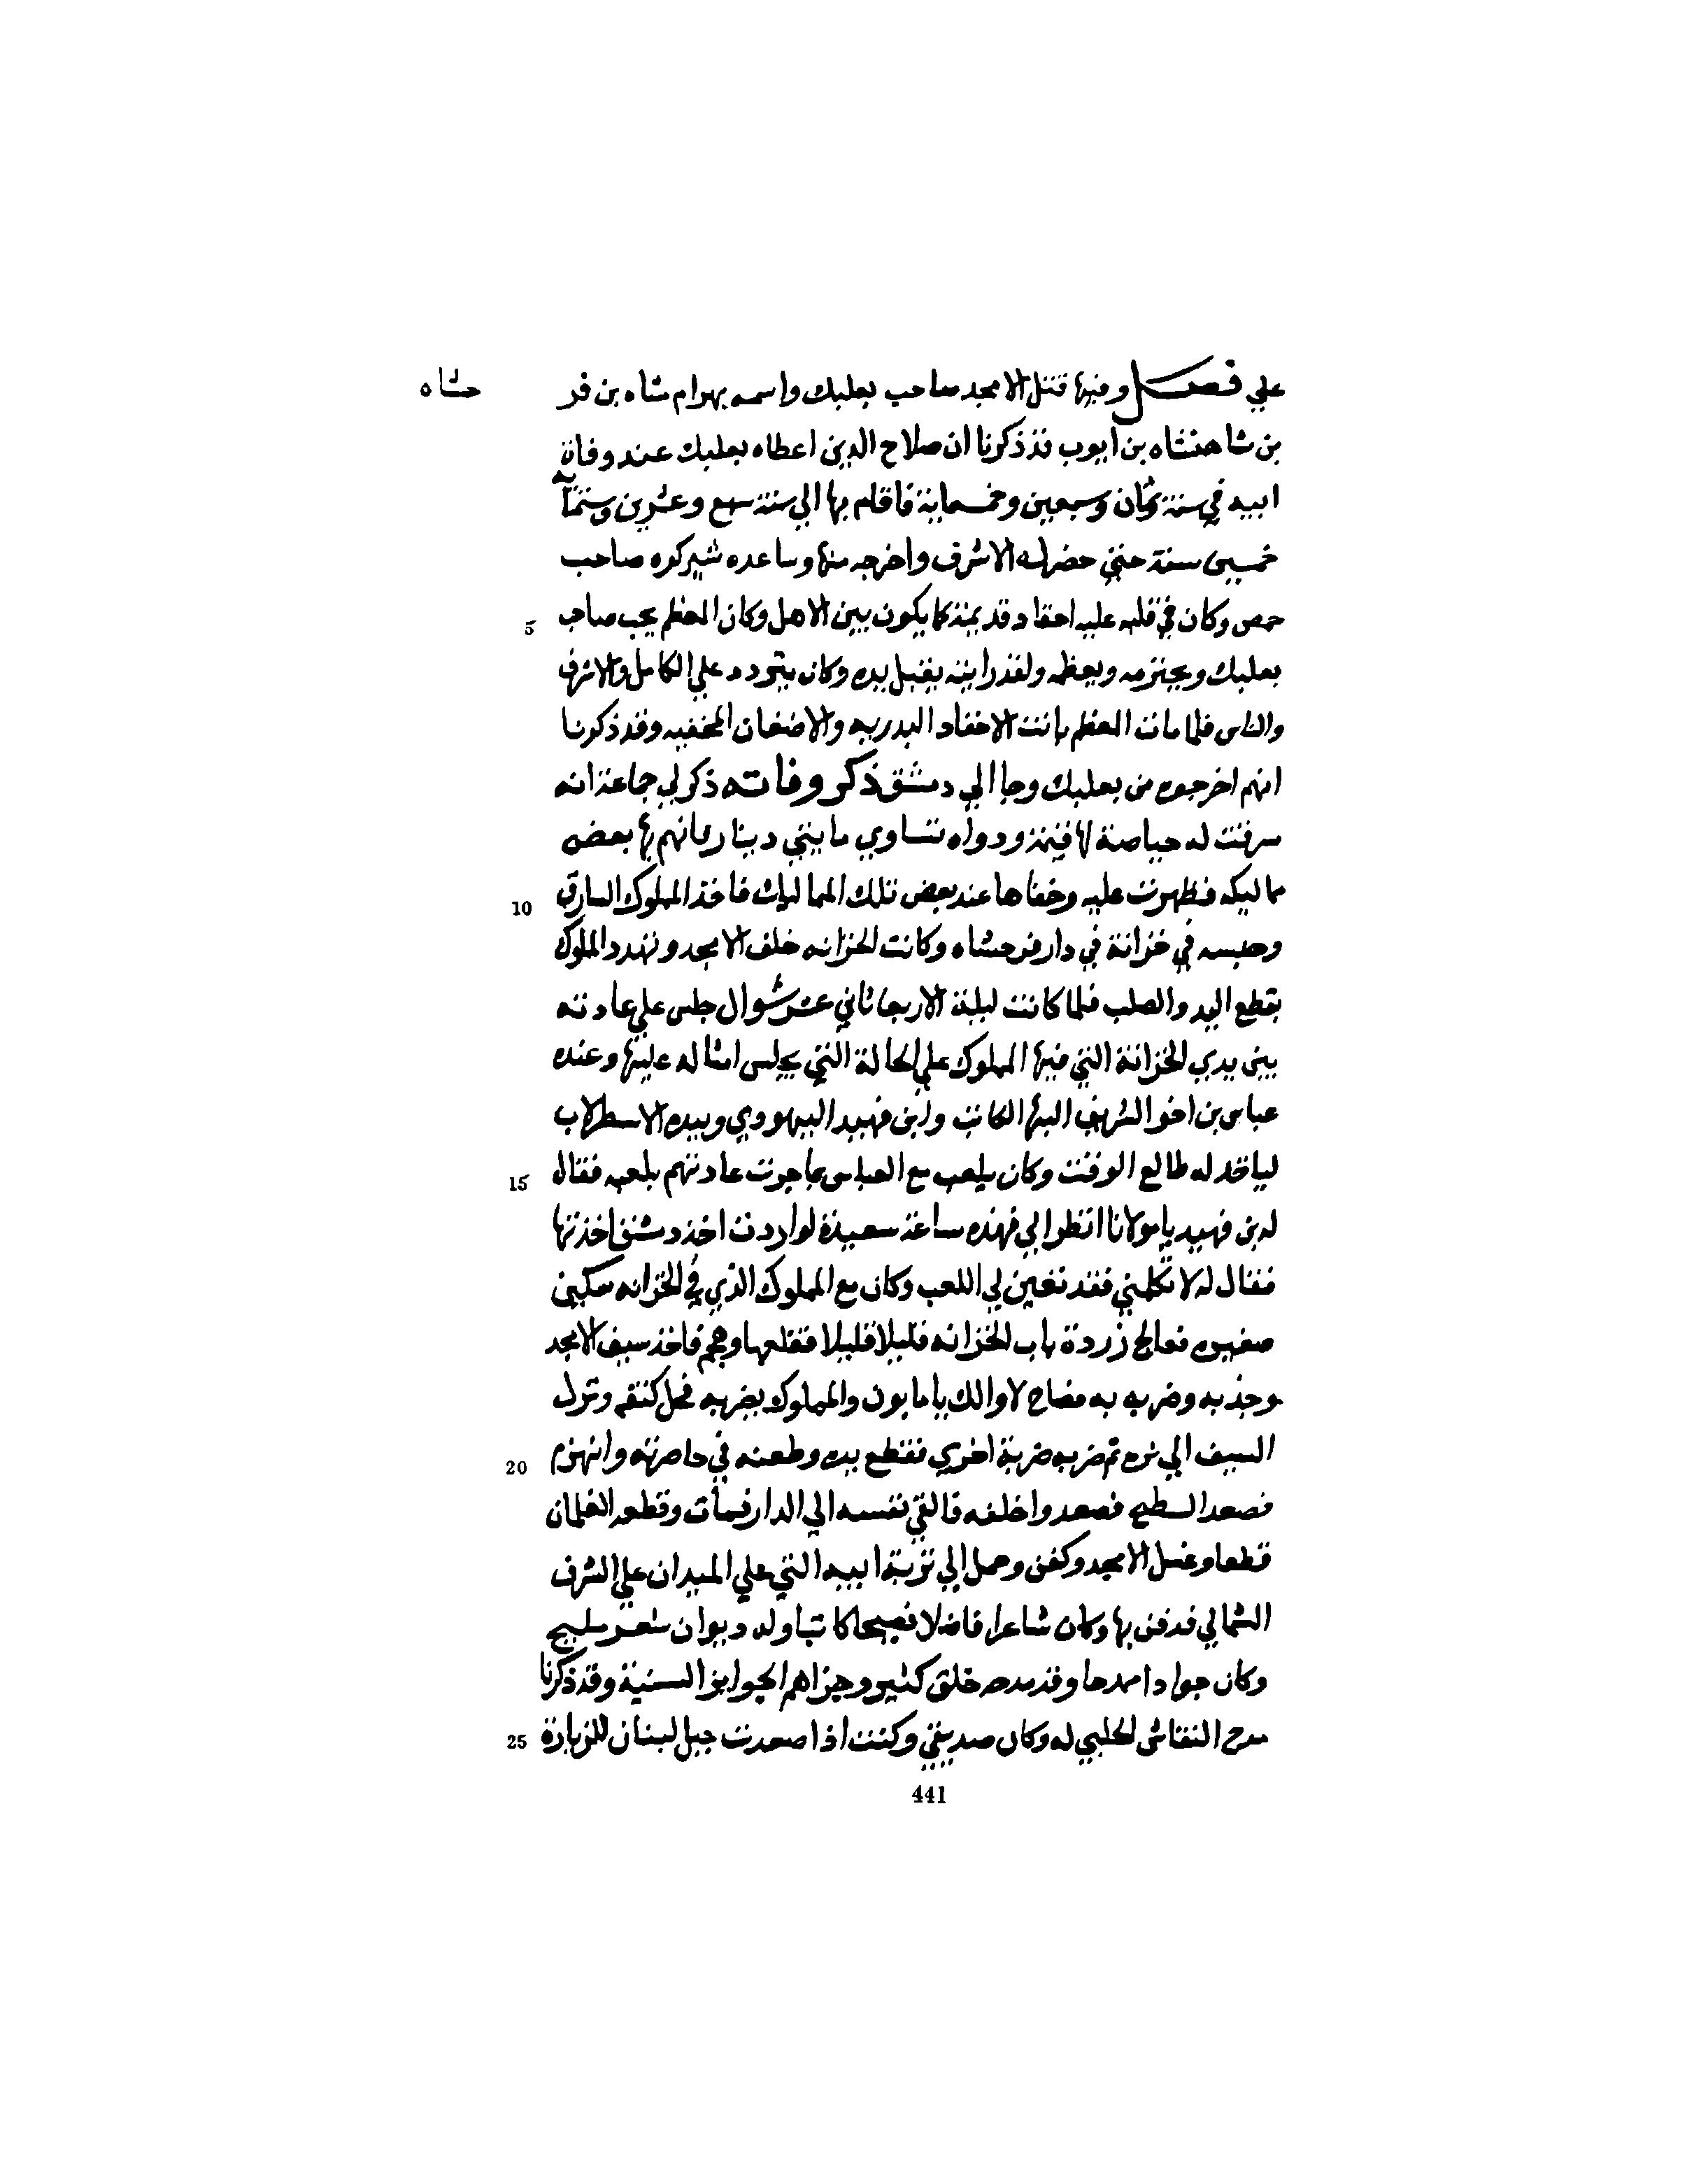 علي فصل وفيها قتل الامجد صاحب بعلبك واسمه بهرام شاه بن فر حشاه
بن شاهنشاه بن ايوب قد ذكرنا ان صلاح الدين اعطاه بعلبك عند وفاة
ابيه في سنة ثمان وسبعين وخمسماية فاقام بها الي سنة سبع وعشرين وستماية
خمسين سنة حتي حضر له الاشرف واخرجه منها وساعده شيركوه صاحب
حمص وكان في قلبه عليه احقاد قديمة كما يكون بين الاهل وكان المعظم يحب صاحب 5
بعلبك ويحترمه ويعظمه ولقد رايته يقبل يده وكان يتردد علي الكامل والاشرف
والناس فلما مات المعظم بانت الاحقاد البدريه والاضغان المخفيه وقد ذكرنا
انهم اخرجوه من بعلبك وجا الي دمشق ذكر وفاته ذكر لي جماعة انه
سرقت له حياصة لا قيمة ودواه تساوي مايتي دينار فاتهم بها بعض
مماليكه فظهرت عليه وخفاها عند بعض تلك المماليك فاخذ المملوك السارق 10
وحبسه في خزانة في دار فرحشاه وكانت الخزانه خلف الامجد وتهدد المملوك
بقطع اليد والصلب فلما كانت ليلة الاربعا ثاني عشر شوال جلس علي عادته
بين يدي الخزانة التي فيها المملوك علي الحالة التي يجلس امثاله عليها وعنده
عباس بن اخو الشريف البها الكاتب وابن فهيد اليهودي وبيده الاسطرلاب
لياخد له طالع الوقت وكان يلعب مع العباس بما جرت عادتهم بلعبه فقال 15
له بن فهيد يا مولانا انظر الي فهذه ساعة سعيدة لو اردت اخذ دمشق اخذتها
فقال له لا تكلمني فقد تعين لي اللعب وكان مع المملوك الذي في الخزانه سكين
صغيره فعالج زردة باب الخزانه قليلا قليلا فقلعها وهجم فاخذ سيف الامجد
وجذبه وضربه به فصاح لا والك يا مابون والمملوك يضربه فحل كتفه ونزل
السيف الي بزه ثم ضربه ضربة اخري فقطع يده وطعنه في خاصرته وانهزم 20
فصعد السطح فصعدوا خلفه فالقي نفسه الي الدار فمات وقطعه الغلمان
قطعا وغسل الامجد وكفن وحمل الي تربة ابيه التي علي الميدان علي الشرف
الشمالي فدفن بها وكان شاعرا فاضلا فصيحا كاتبا وله ديوان شعر مليح
وكان جوادا ممدحا وقد مدحه خلق كثير وجزاهم الجوايز السنية وقد ذكرنا
مدح النقاش الحلبي له وكان صديقي وكنت اذا صعدت جبل لبنان للزيارة 25
441